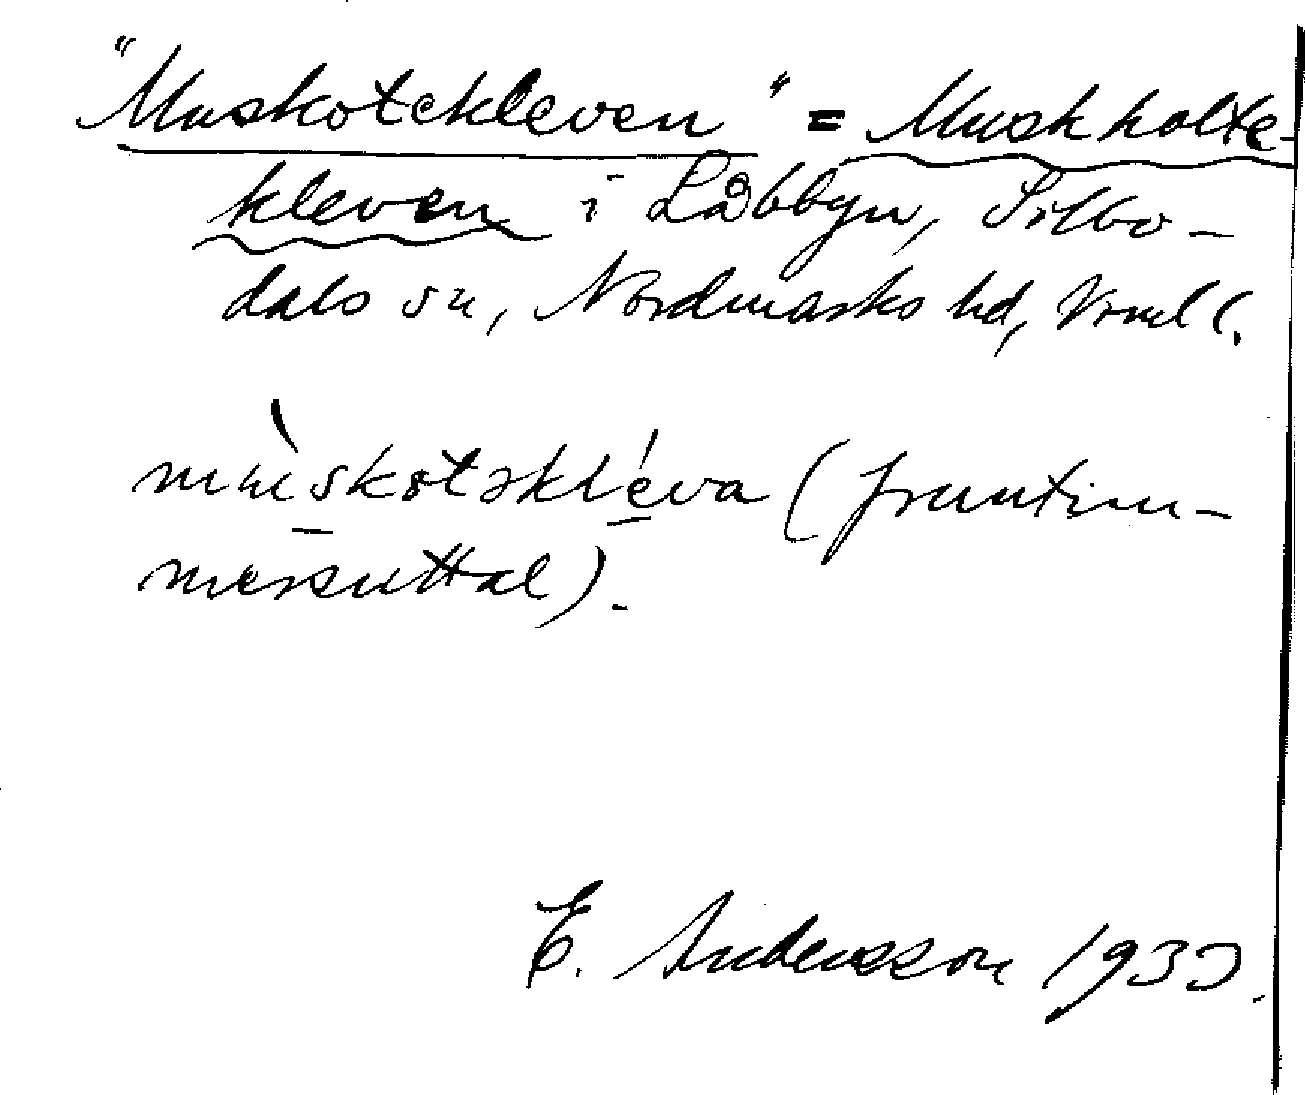 "Muskotekleven" = Muskholte-
kleven i Låbbyn, Silbo-
dals sn, Nordmarks hd, Vrml.
mùskotəkléva (fruntim-
mersuttal).
E. Andersson 1933.